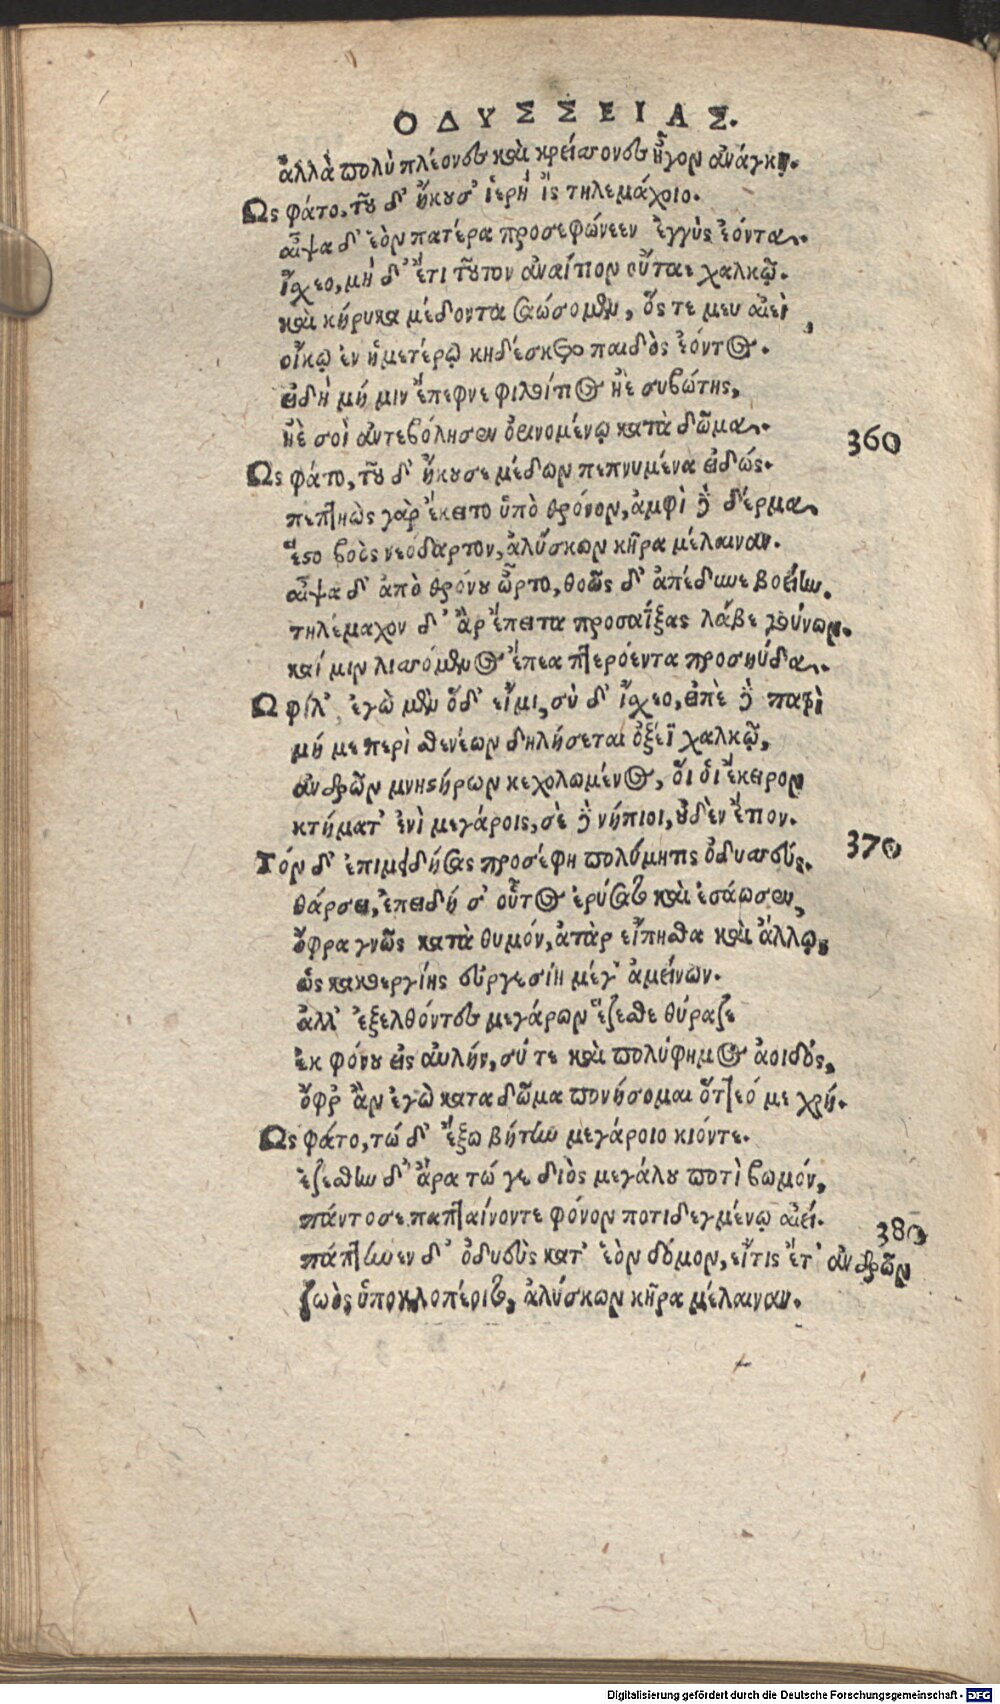 ΟΔΥΣΣΕΙΑΣ.
ἀλλὰ πολὺ πλέονες καὶ κρείσσονες ἦγον ἀνάγκῃ.
Ως φάτο, τοῦ δ' ἤκουσ' ἱερὴ ἲς τηλεμάχοιο.
αἶψα δ' ἑὸν πατέρα προσεφώνεεν ἐγγὺς ἐόντα.
ἴσχεο, μὴ δ' ἔτι τοῦτον ἀναίτιον οὔταε χαλκῷ.
καὶ κήρυκα μέδοντα σαώσομεν, ὅς τε μευ αἰεὶ,
οἴκῳ ἐν ἡμετέρῳ κηδέσκετο παιδὸς ἐόντος.
εἰδὴ μή μιν ἔπεφνε φιλοίτιος ἠὲ συβώτης,
ἠὲ σοὶ ἀντεβόλησεν ὀρινομένῳ κατὰ δῶμα.
360
Ως φάτο, τοῦ δ' ἤκουσε μέδων πεπνυμένα εἰδώς.
πεπτηὼς γὰρ ἔκειτο ὑπὸ θρόνον, ἀμφὶ δὲ δέρμα
ἕστο βοὸς νεόδαρτον, ἀλύσκων κῆρα μέλαιναν.
αἶψα δ' ἀπὸ θρόνου ὦρτο, θοῶς δ' ἀπέδυνε βοείην.
τηλέμαχον δ' ἂρ ἔπειτα προσαΐξας λάβε γούνων.
καί μιν λισσόμενος ἔπεα πτερόεντα προσηύδα.
Ω φίλ', ἐγὼ μὲν ὅδ' εἶμι, σὺ δ' ἴσχεο, εἰπὲ δὲ πατρὶ
μή με περὶ σθενέων δηλήσεται ὀξέϊ χαλκῷ,
ἀνδρῶν μνηστήρων κεχολωμένος, οἵ οἱ ἔκειρον
κτήματ' ἐνὶ μεγάροις, σὲ δὲ νήπιοι, οὐδὲν ἔτιον.
370
Τόν δ' ἐπιμειδήσας προσέφη πολύμητις ὀδυσσεύς.
θάρσει, ἐπειδή σ' οὗτος ἐρύσατο καὶ ἐσάωσεν,
ὄφρα γνῶς κατὰ θυμόν, ἀτὰρ εἴπησθα καὶ ἄλλῳ,
ὡς κακοεργίης εὐεργεσίη μέγ' ἀμείνων.
ἀλλ' ἐξελθόντες μεγάρων ἕζεσθε θύραζε
ἐκ φόνου εἰς αὐλήν, σύ τε καὶ πολύφημος ἀοιδός,
ὄφρ' ἂν ἐγὼ κατα δῶμα πονήσομαι ὅττεό με χρή.
Ως φάτο, τώ δ' ἔξω βήτην μεγάροιο κιόντε.
ἑζέσθην δ' ἄρα τώ γε διὸς μεγάλου ποτὶ βωμόν,
πάντοσε παπταίνοντε φόνον ποτιδεγμένῳ αἰεί.
380
πάπτηνεν δ' ὀδυσεὺς κατ' ἑὸν δόμον, εἴτις ἔτ' ἀνδρῶν
ζωὸς ὑποκλοπέοιτο, ἀλύσκων κῆρα μέλαιναν.
Digitalisierung gefördert durch die Deutsche Forschungsgemeinschaft - DFG